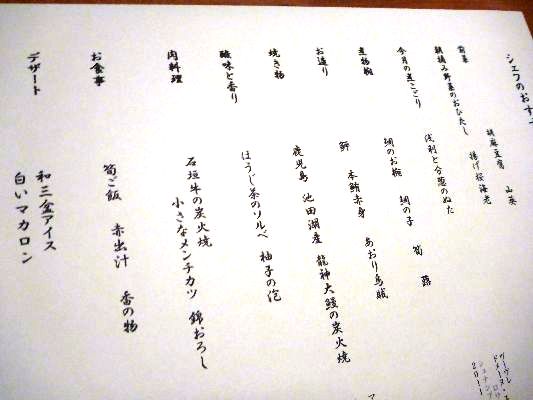 シェフのおす
前菜 胡麻豆腐 山葵
朝摘み野菜のおひたし 揚げ桜海老
今月の煮こごり 浅利と分葱のぬた
煮物椀 鯛のお椀 鯛の子 筍 蕗
お造り 鰤 本鮪赤身 あおり烏賊
焼き物 鹿児島 池田湖産 龍神大鰻の炭火焼
酸味と香り ほうじ茶のソルベ 柚子の泡
肉料理 石垣牛の炭火焼
小さなメンチカツ 錦おろし
お食事 筍ご飯 赤出汁 香の物
デザート 和三盆アイス
白いマカロン